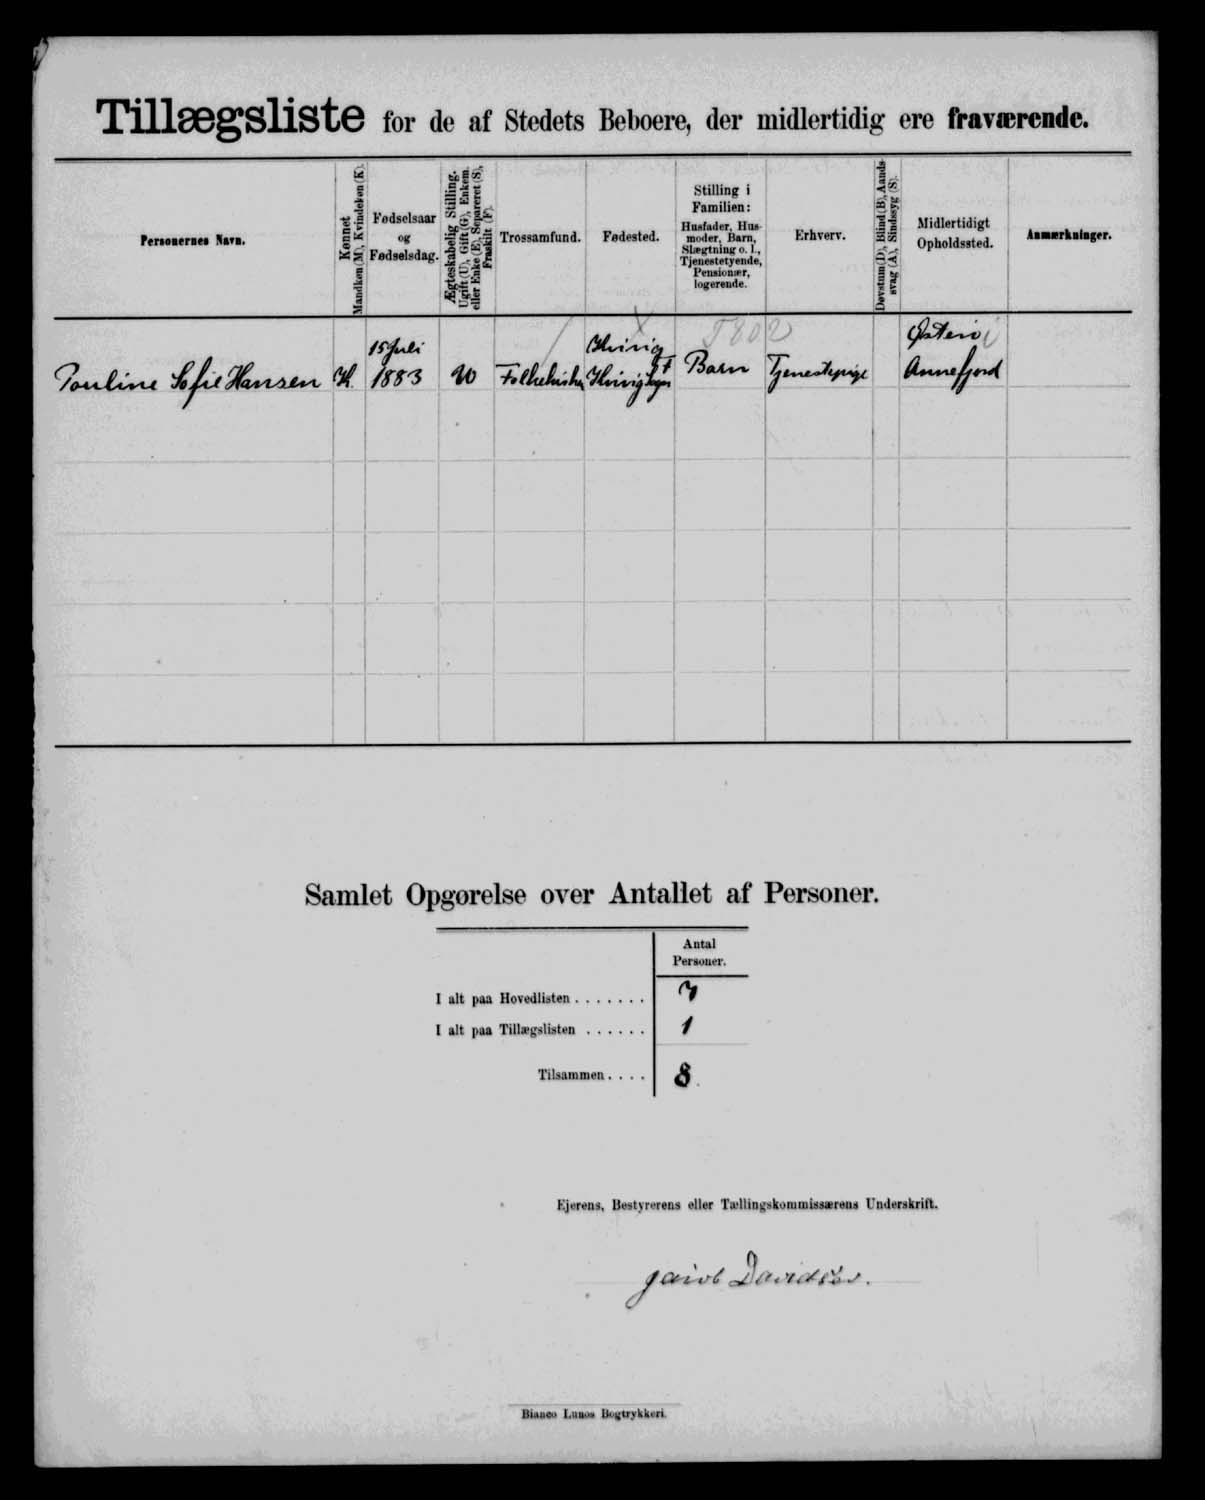 Tillægsliste for de af Stedets Beboere, der midlertidig ere fraværende.
Personernes Navn.
Kønnet
Mandkøn (M), Kvindekøn (K).
Fødselsaar
og
Fødselsdag.
Ægteskabelig Stilling.
Ugift (U), Gift (G), Enkem.
eller Enke (E), Separeret (S),
Fraskilt (F).
Trossamfund.
Fødested.
Stilling i
Familien:
Husfader, Hus-
moder, Barn,
Slægtning o. l.,
Tjenestetyende,
Pensionær,
logerende.
Erhverv.
Døvstum (D), Blind (B), Aands-
svag (A), Sindssyg (S).
Midlertidigt
Opholdssted.
Anmærkninger.
Pouline Sofie Hansen
K.
15 Juli
1883
U
Folkekirke
Hvivig
Hvivig Sogn
Barn
Tjenestepige
Østerø
Annefjord
Samlet Opgørelse over Antallet af Personer.
Antal
Personer.
I alt paa Hovedlisten . . . . . . . 7
I alt paa Tillægslisten . . . . . . 1
Tilsammen . . . . 8
Ejerens, Bestyrerens eller Tællingskommissærens Underskrift.
Davidsen.
Bianco Lunos Bogtrykkeri.